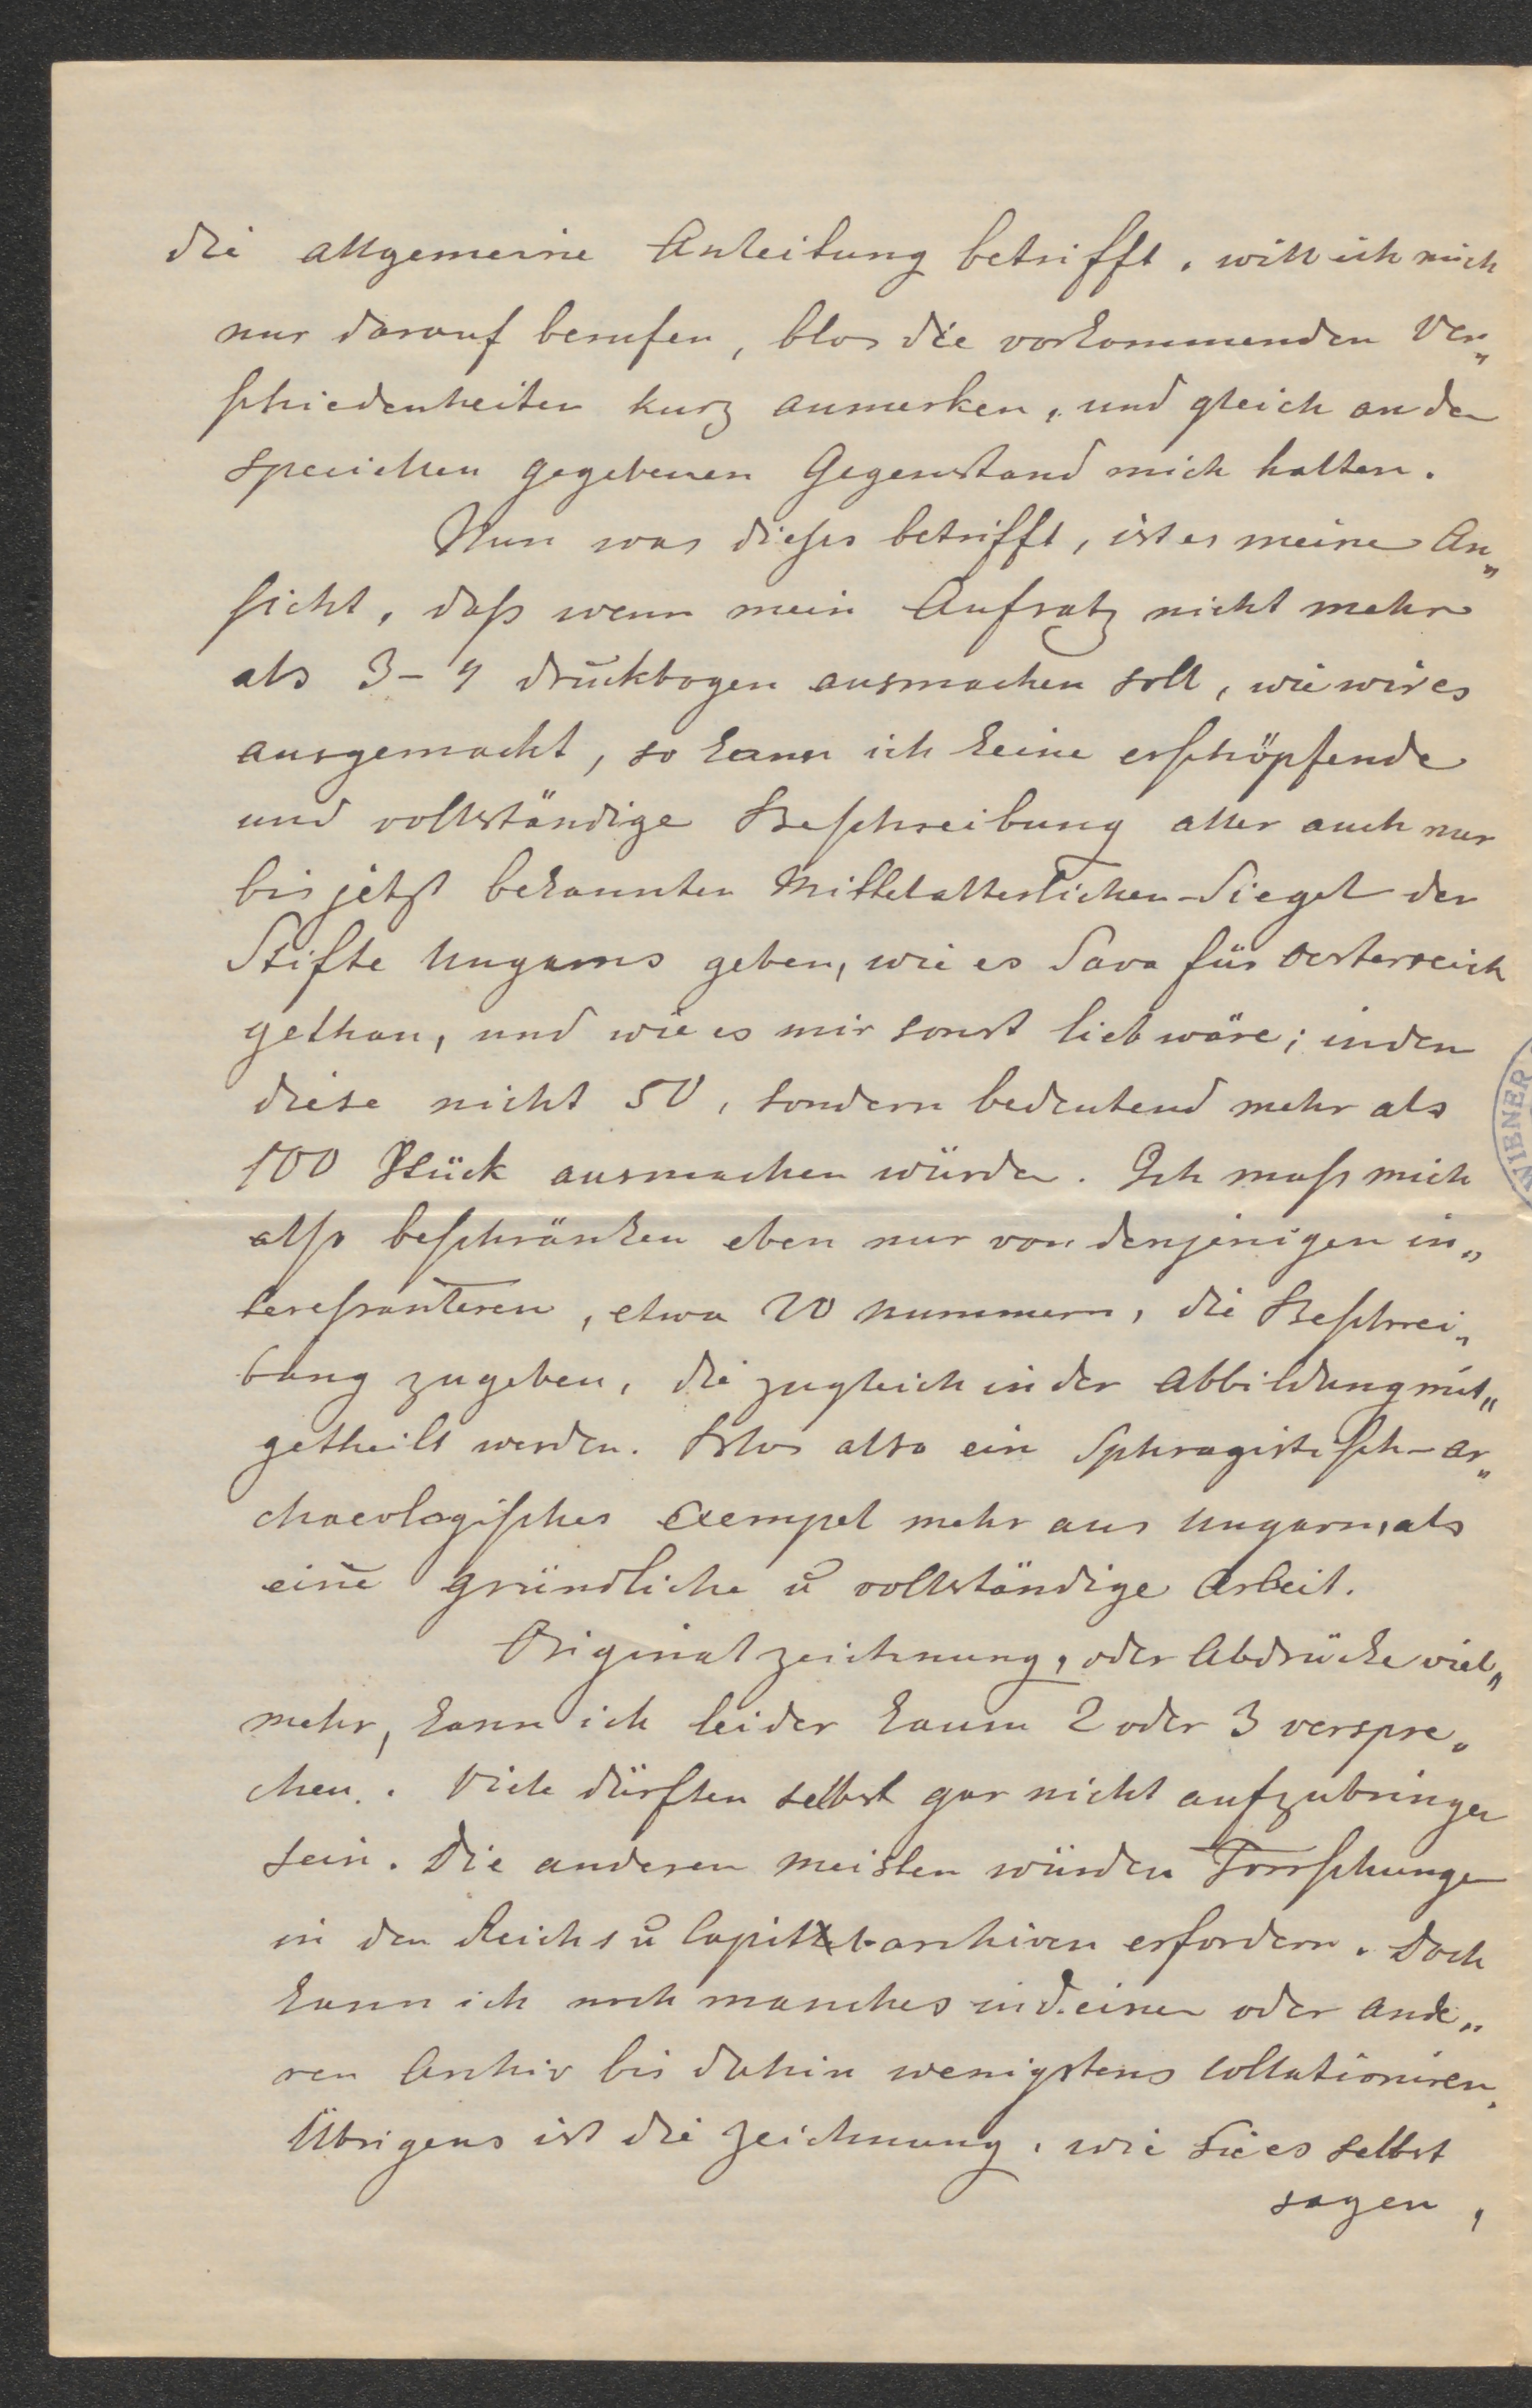 die allgemeine Anleitung betrifft, will ich mich
nur darauf berufen, blos die vorkommenden Ver„
schiedenheiten kurz anmerken, und gleich an den
speciellen gegebenen Gegenstand mich halten.
Nun was dieses betrifft, ist es meine An„
sicht, daß wenn mein Aufsatz nicht mehr
als 3-4 druckbogen ausmachen soll, wie wir es
ausgemacht, so kann ich keine erschöpfende
und vollständige Beschreibung aller auch nur
bis jetzt bekannten Mittelalterlichen-Siegel der
Stifte Ungarns geben, wie es Sava für Oesterreich
gethan, und wie es mir sonst lieb wäre; indem
diese nicht 50, sondern bedeutend mehr als
100 Stück ausmachen würden. Ich muß mich
also beschränken eben nur von denjenigen in„
teressanteren, etwa 20 nummern, die Beschrei„
bung zu geben, die zugleich in der Abbildung mit„
getheilt werden. Blos also ein Sphragistisch-ar„
chaeologisches Exempel mehr aus Ungarn, als
eine gründliche u vollständige Arbeit.
Originalzeichnung, oder Abdrücke viel„
mehr, kann ich leider kaum 2 oder 3 verspre„
chen. Viele dürften selbst gar nicht aufzubringen
sein. Die anderen meisten würden Forschungen
in den Reichs u Capitelarchiven erfordern. Doch
kann ich noch manches in d. einen oder ande„
ren Archiv bis dahin wenigstens collationiren.
Übrigens ist die Zeichnung, wie Sie es selbst
sagen,
WIENER